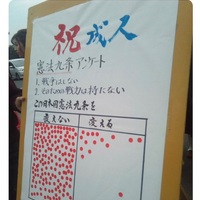 祝成人
憲法九条アンケート
1. 戦争はしない
2. そのための戦力は持たない
この日本国憲法九条を
変えない 変える